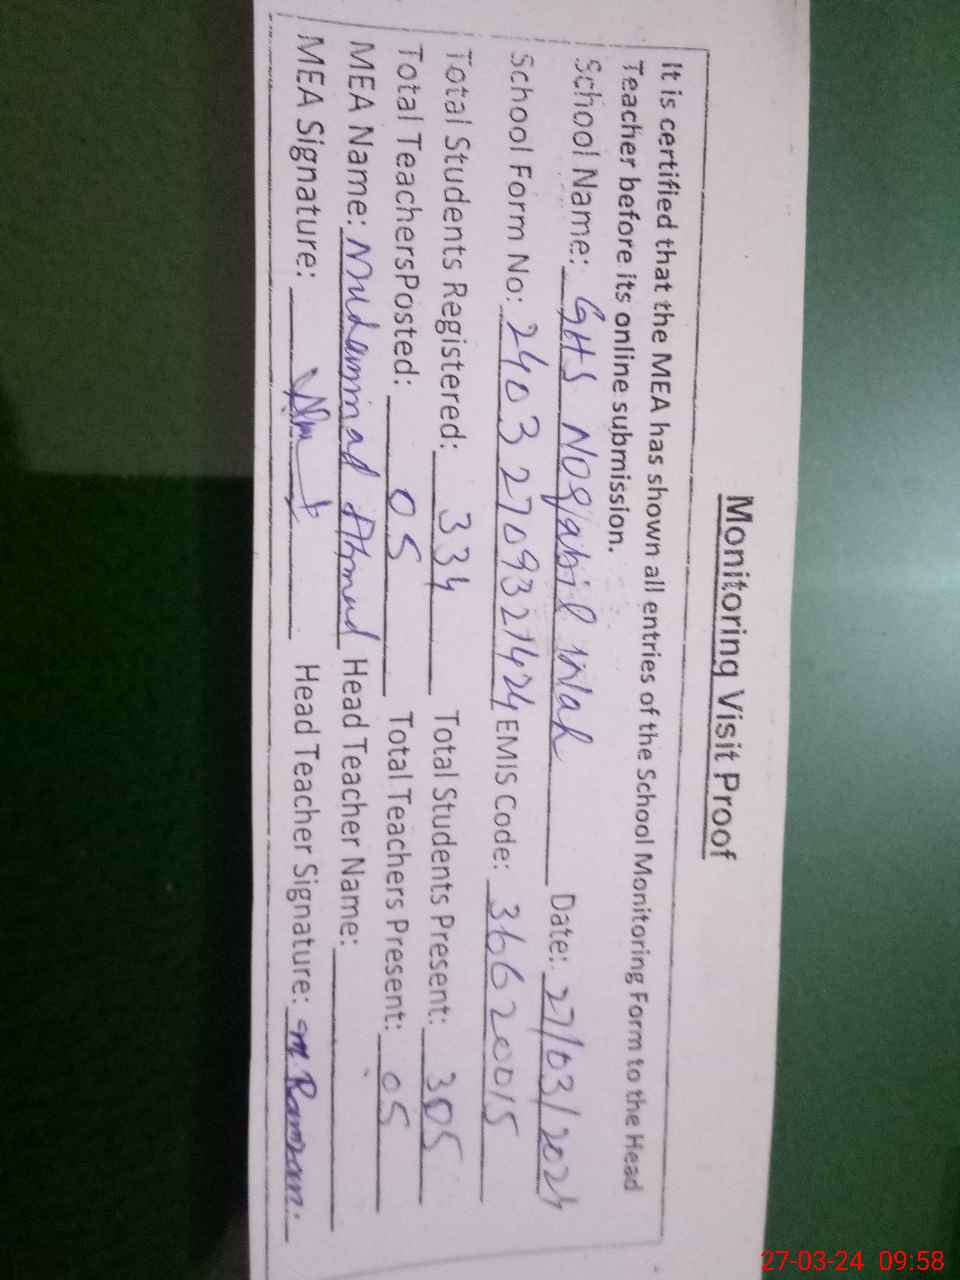 Monitoring Visit Proof
It is certified that the MEA has shown all entries of the School Monitoring Form to the Head
Teacher before its online submission.
School Name: GHS Date: 27/03/2024
School Form No: 24032709321424 EMIS Code: 36620015
Total Students Registered: 334 Total Students Present: 305
Total TeachersPosted: 05 Total Teachers Present: 05
MEA Name: Muhammad Ahmed Head Teacher Name:
MEA Signature: Head Teacher Signature: M. Ramzan
27-03-24 09:58